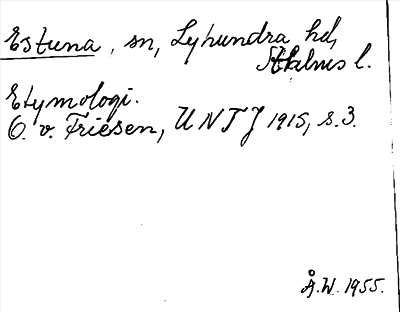 Estuna, sn, Lyhundra hd,
Sthlms l.
Etymologi.
O. v. Friesen, UNTJ 1915, s. 3.
Å.W. 1955.